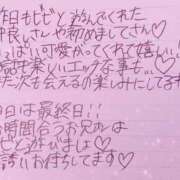 昨日もビビと遊んでくれた
仲良しさんや初めましてさん♡
っぱい可愛がってくれて嬉しい!
話も楽しいエッチな事も…♡
た次も会えるの楽しみにしてるね
日は最終日!!
お時間合うお兄さんは
ビと遊びましょ♡
お誘いお待ちしてます♡